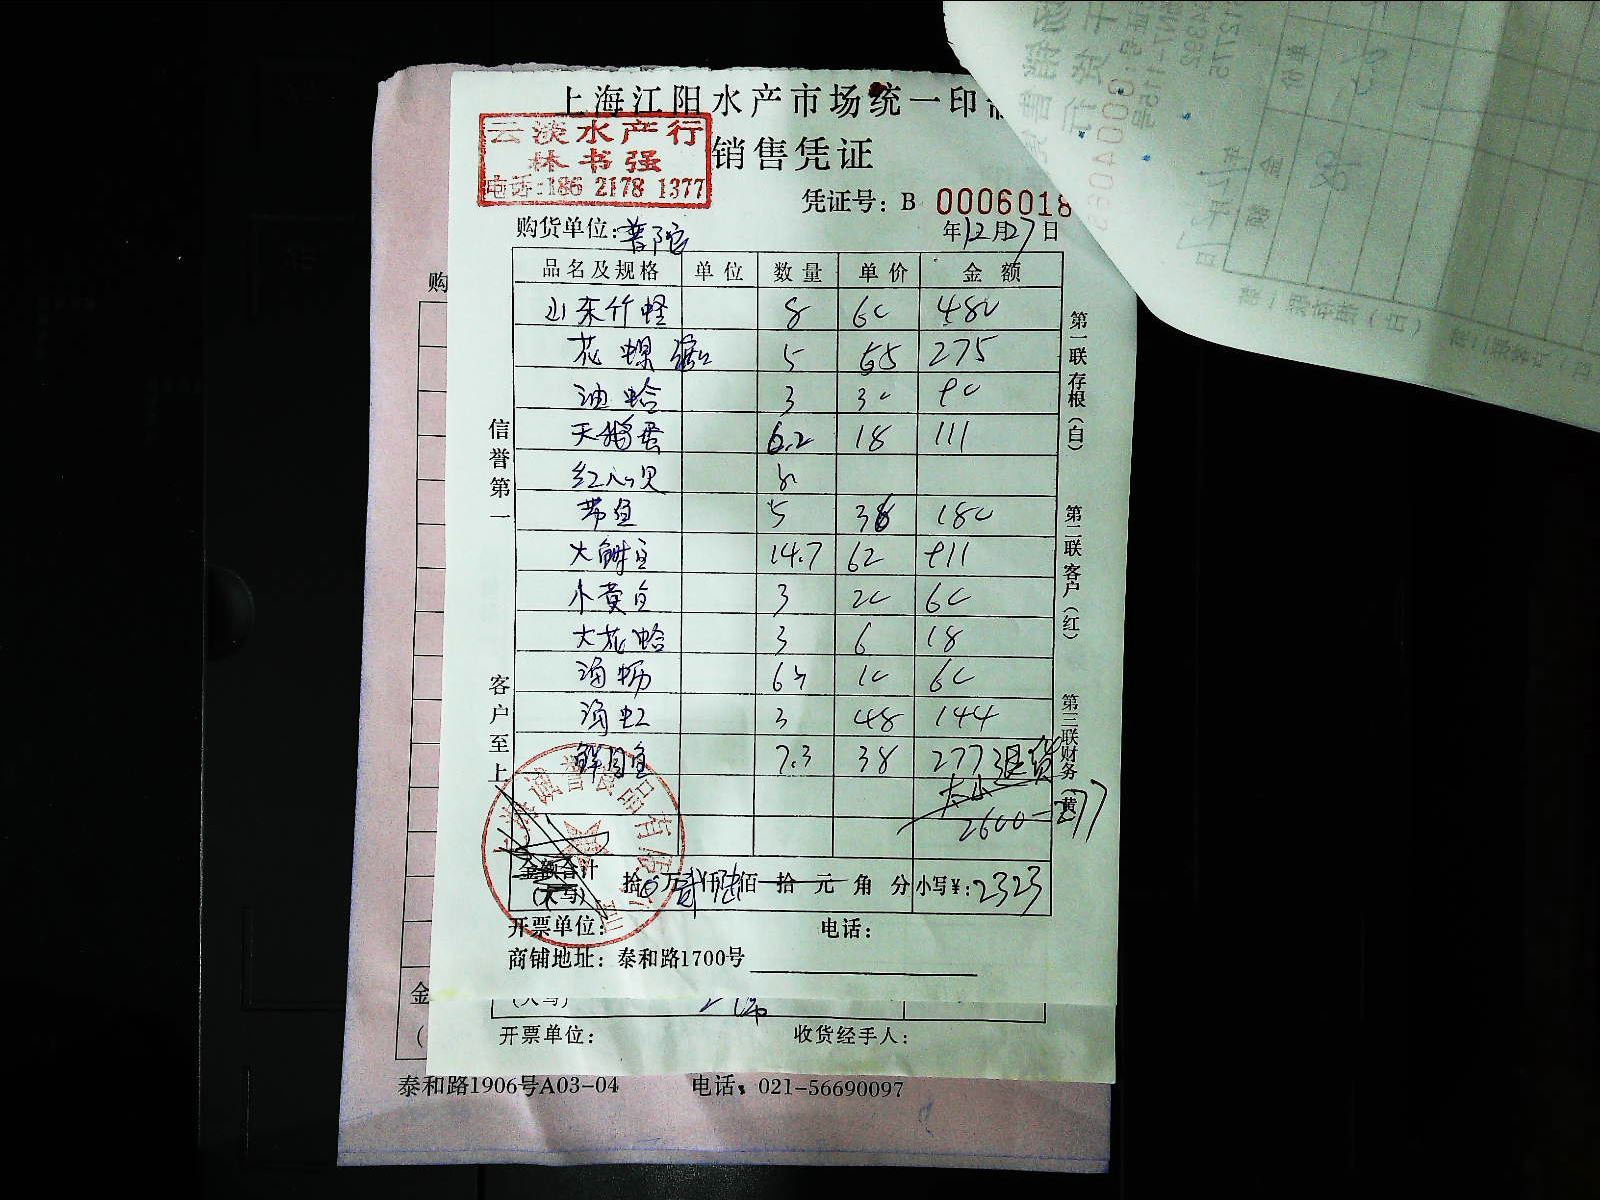 上海江阳水产市场统一印
云淡水产行
林书强
电话:186 2178 1377
销售凭证
凭证号: B 0006018
购货单位: 普陀 年12月27日
品名及规格 单位 数量 单价 金额
山东竹蛏 8 60 480
花螺 5 55 275
油蛤 3 30 90
天鹅蛋 6.2 18 111
红心贝
带鱼 5 36 180
大鲜鱼 14.7 62 911
小黄鱼 3 20 60
大花蛤 3 6 18
海蛎 10 60
海虹 3 48 144
7.3 38 277 退货
2600-277
金额合计
(大写) 拾 万贰仟陆佰 拾 元 角 分 小写¥: 2323
开票单位: 电话:
商铺地址: 泰和路1700号
信誉第一
客户至上
第一联存根(白)
第二联客户(红)
第三联财务(黄)
(大写)
开票单位: 收货经手人:
购
金
泰和路1906号A03-04 电话: 021-56690097